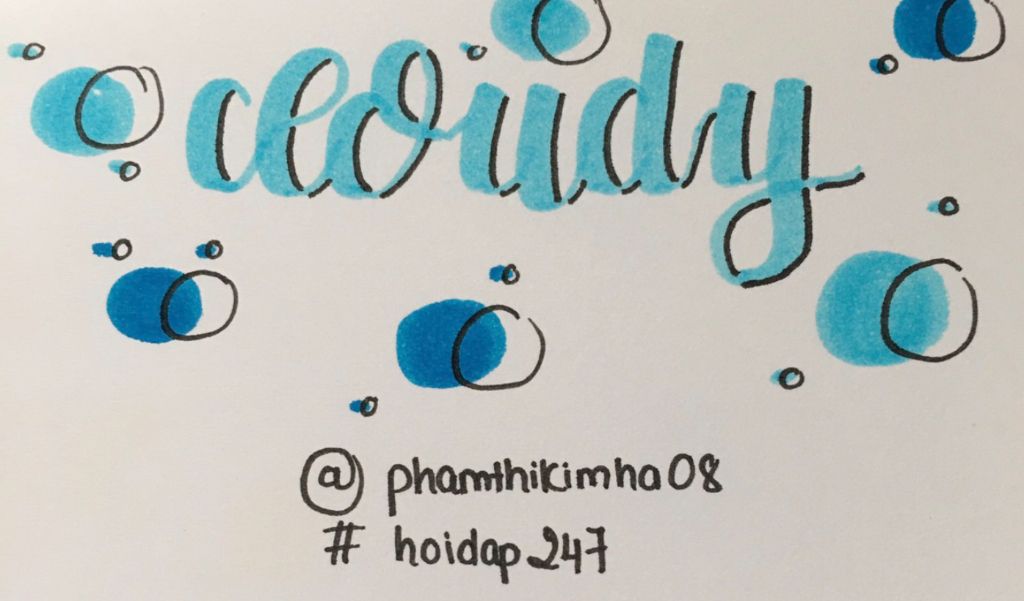 cloudy
@ phamthikimha08
# hoidap247